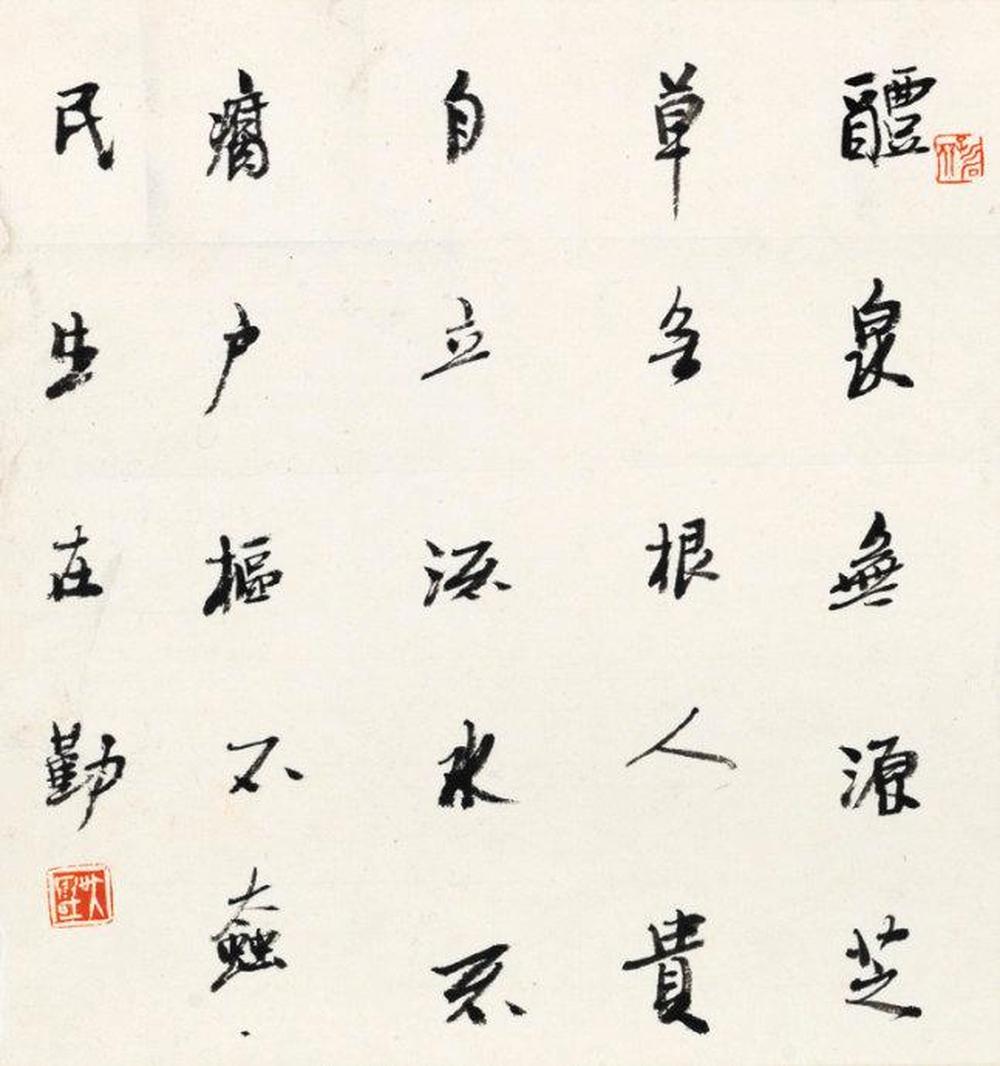 醴泉無源芝
草無根人貴
自立流水不
腐户樞不蠹
民生在勤